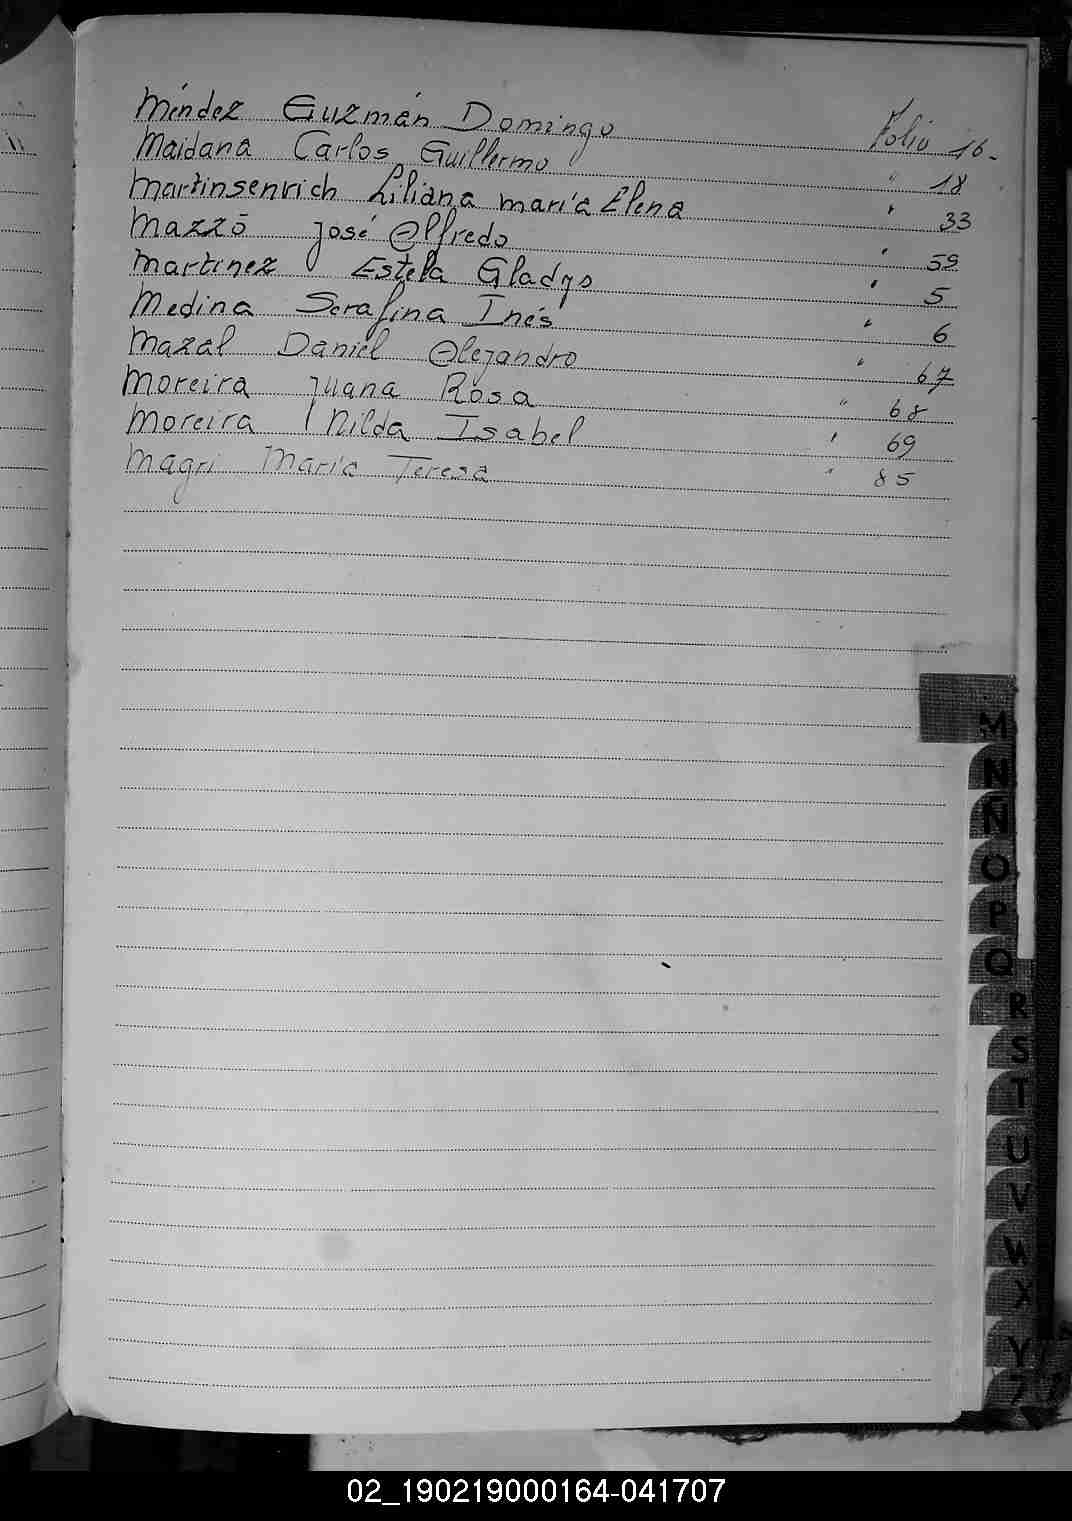 Méndez Guzmán Domingo Folio 16.
Maidana Carlos Guillermo " 18
Martinsenrich Liliana maría Elena " 33
Mazzō José Alfredo " 59
Martinez Estela Gladys " 5
Medina Serafina Inés " 6
Mazal Daniel Alejandro " 67
Moreira Juana Rosa " 68
Moreira Nilda Isabel " 69
Magri María Teresa " 85
M
N
Ñ
O
P
Q
R
S
T
U
V
W
X
Y
Z
02_190219000164-041707